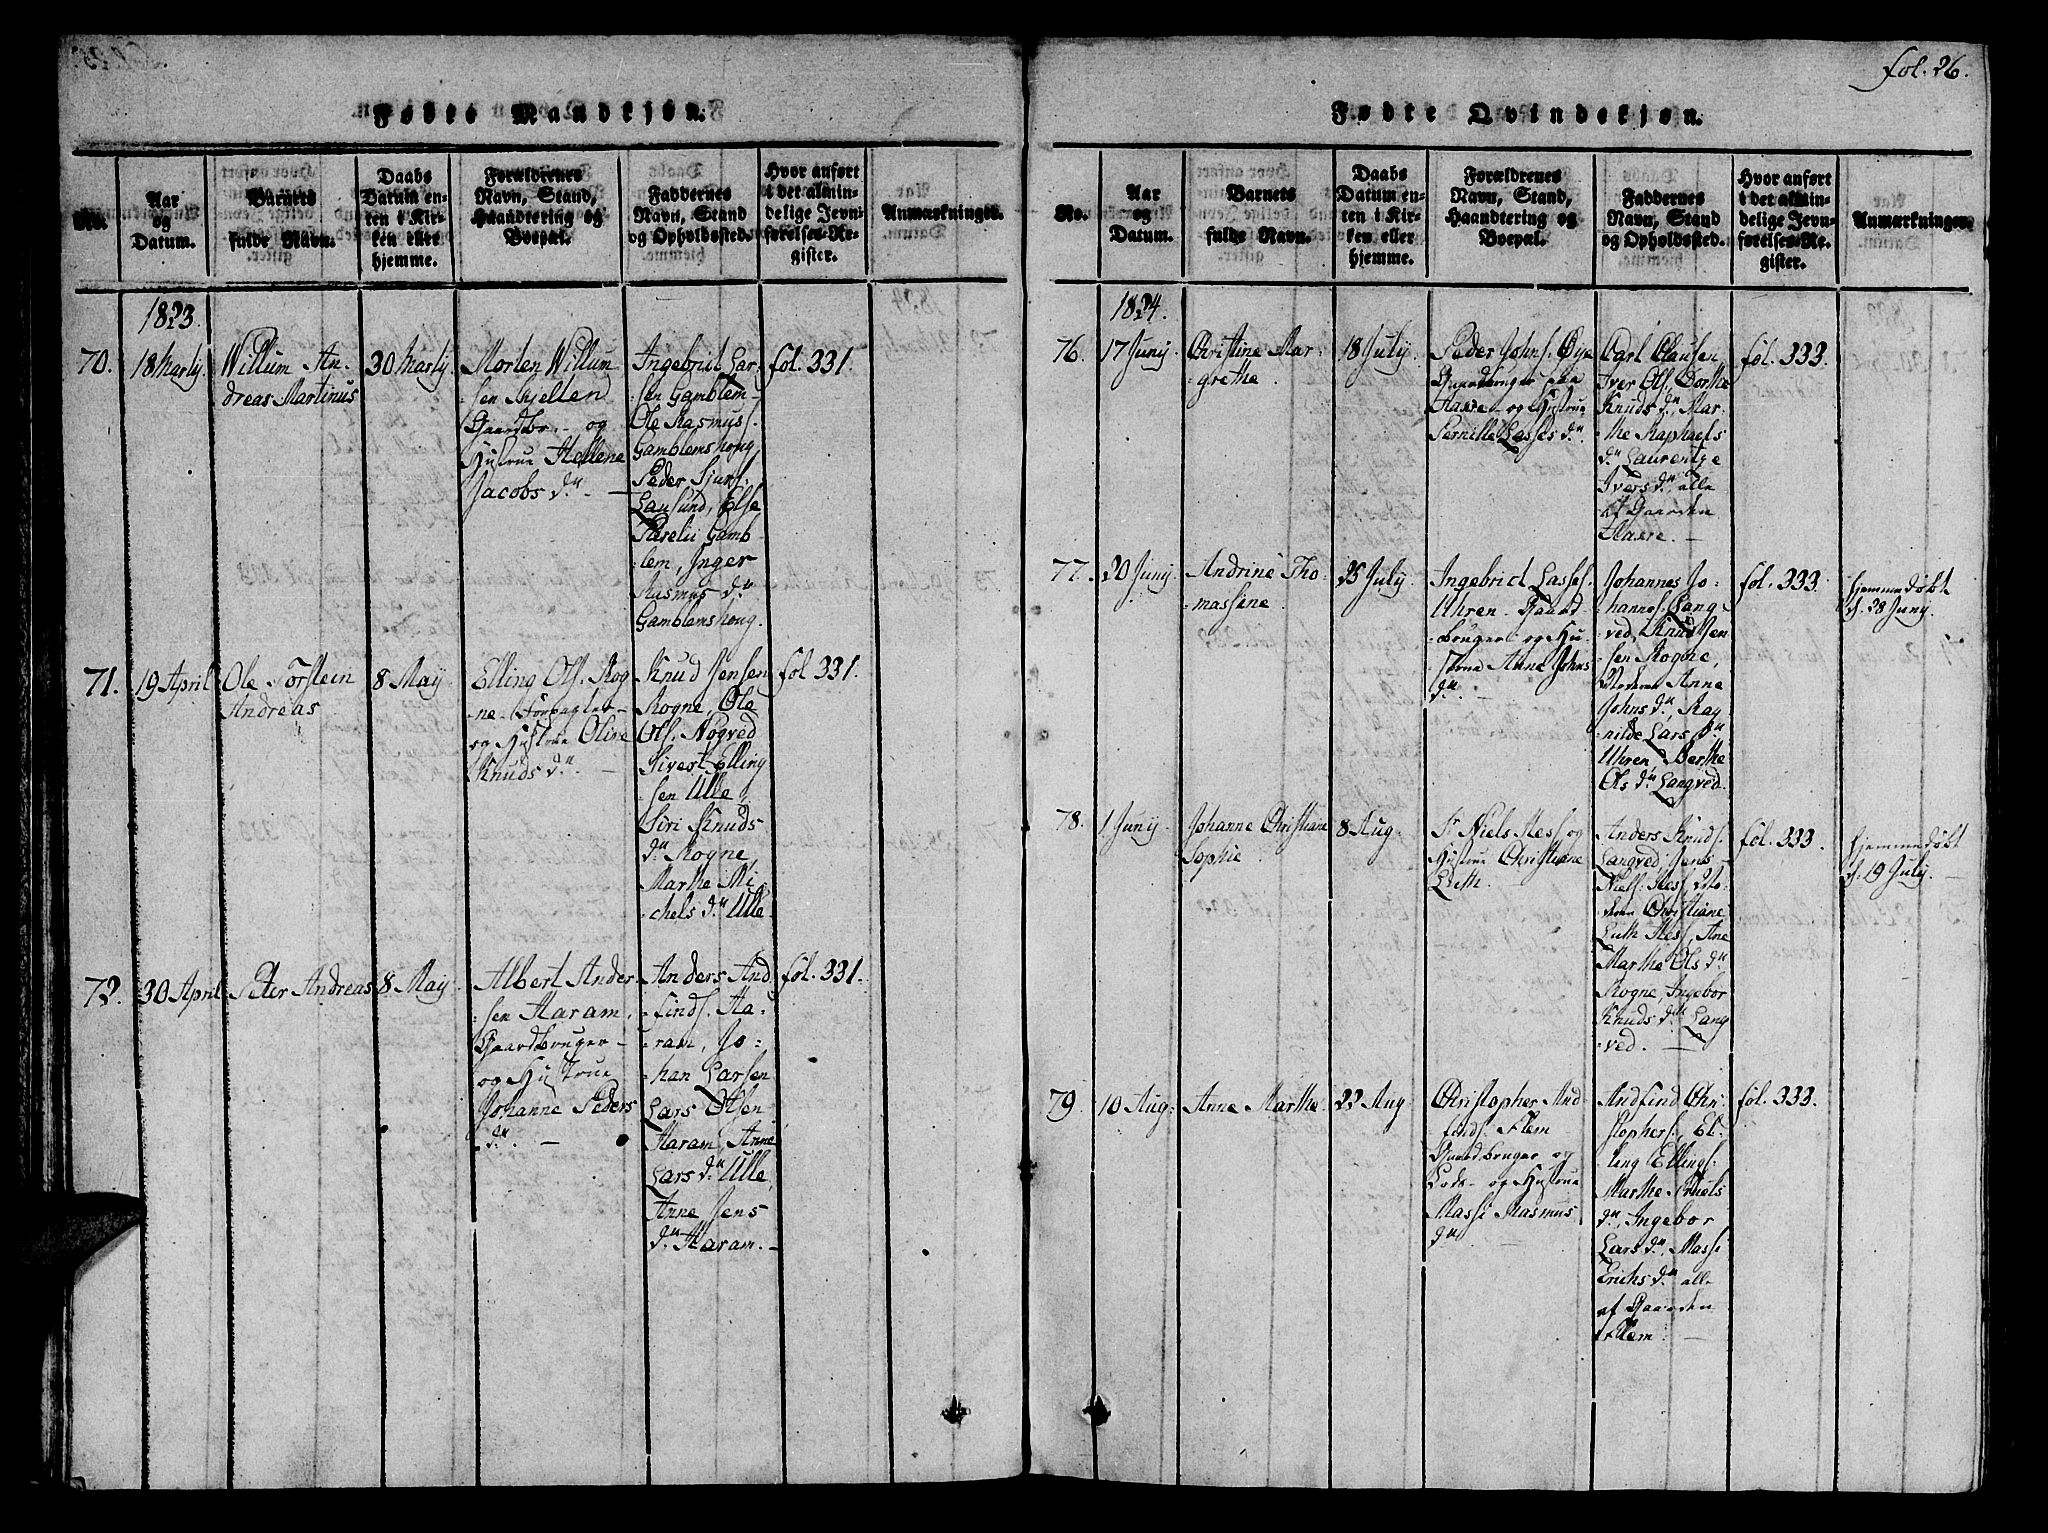 fol. 26.
Fødte Mandkjøn.
No.
Aar
og
Datum.
Barnets
fulde Navn.
Daabs
Datum en-
ten i Kir-
ken eller
hjemme.
Forældrenes
Navn, Stand,
Haandtering og
Boepæl.
Faddernes
Navn, Stand
og Opholdssted.
Hvor anført
i det almin-
delige Jevn-
førelses-Re-
gister.
Anmærkninger.
1823.
70.
18 Martij
Willum An-
dreas Martinus
30 Martij
Morten Willum
sen Skjelten
Gaardbr. - og
Hustrue Hellene
Jacobs d.
Ingebrict Lar-
sen Gamblem -
Ole Rasmus.
Gamblemshoug
Peder Sjurs.
Lausund, Else
Gamb-
lem, Inger
Rasmus d.
Gamblemshoug.
fol. 331.
71.
19 April
Ole Torstein
Andreas
8 May
Elling Ols. Rog
ne - Forpagter -
og Hustrue Olive
Knuds d. -
Knud Jensen
Rogne, Ole
Ols. Nogved
Sivert Elling
sen Ulle,
Siri Knuds
d. Rogne,
Marthe Mi
chels d. Ulle
fol 331.
72.
30 April
Peter Andreas
8 May
Albert Ander
sen Haram,
Gaardbruger -
og Hustrue
Johanne Peders
d. -
Anders And
finds. Ha-
ram, Jo-
han Larsen
Lars Olsen
Haram, Anne
Lars d. Ulle,
Anne Jens
d. Haram. -
fol. 331.
Fødte Qvindekjøn.
No.
Aar
og
Datum.
Barnets
fulde Navn.
Daabs
Datum en-
ten i Kir-
ken eller
hjemme.
Forældrenes
Navn, Stand,
Haandtering og
Boepæl.
Faddernes
Navn, Stand
og Opholdssted.
Hvor anført
i det almin-
delige Jevn-
førelses-Re-
gister.
Anmærkninger.
1824.
76.
17 Junij
Christine Mar-
grethe
18 July
Peder Johns. Øye
Gaardbruger paa
Haxre - og Hustrue
Pernille Lasses d.
Carl Clausen,
Iver Ols, Dorthe
Knuds d., Mar-
the Raphaels
d. Laurentze
Ivers d., alle
af Gaarden
Haxre. -
fol. 333.
77.
20 Junij
Andrine Tho-
massine
25 July
Ingebrict Lasses.
Uhren - Gaard-
bruger - og Hu-
strue Anne Johns
d. -
Johannes Jo-
hannes. Lang-
ved, Knud Jen-
sen Rogne,
Moderen Anne
Johns d., Rag
nilde Lars d.
Uhren Berthe
Ols d. Langved.
fol. 333.
hjemmedøbt
d. 28 Junij.
78.
1 Junij
Johanne Christiane
Sophie
8 Aug.
Sr Niels Hess og
Hustrue Christiane
Luth.
Anders Knuds.
Langved, Jens
Niels. Hess, Mo-
deren Christiane
Luth Hess, Ane
Marthe Ols d.
Rogne, Ingebor
Knuds d. Lang
ved. -
fol. 333.
hjemmedøbt
d. 19 July. -
79.
10 Aug:
Anne Marthe
22 Aug
Christopher And
finds. Flem
Gaardbruger og
Lods - og Hustrue
Massi Rasmus
d.
Andfind Chri
stophers, El-
ling Ellings.
Marthe Niels
d., Ingebor
Lars d., Massi
Erichs d. alle
af Gaarden
Flem. -
fol. 333.